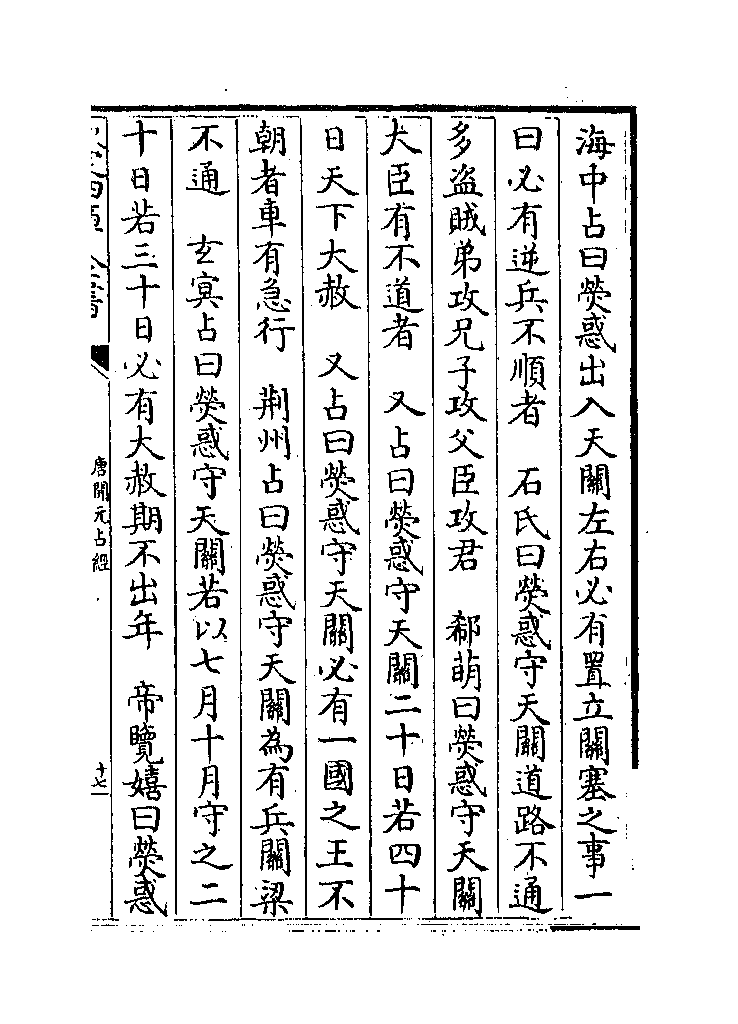 海中占曰熒惑出入天關左右必有置立關塞之事一
曰必有逆兵不順者　石氏曰熒惑守天關道路不通
多盜賊弟攻兄子攻父臣攻君　郗萌曰熒惑守天關
大臣有不道者　又占曰熒惑守天關二十日若四十
日天下大赦　又占曰熒惑守天關必有一國之王不
朝者車有急行　荆州占曰熒惑守天關為有兵關梁
不通　玄冥占曰熒惑守天關若以七月十月守之二
十日若三十日必有大赦期不出年　帝覽嬉曰熒惑
唐開元占經
十七